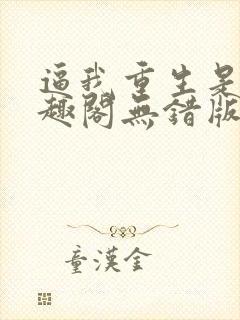 逼我重生是
趣閣無錯版
童漢金